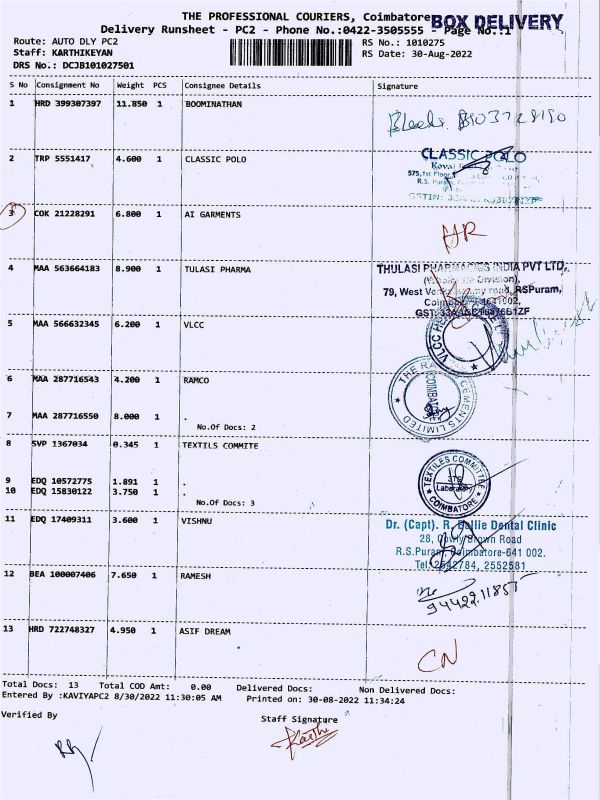 THE PROFESSIONAL COURIERS, Coimbatore BOX DELIVERY
Delivery Runsheet - PC2 - Phone No.:0422-3505555 - Page No.:1
Route: AUTO DLY PC2 RS No.: 1010275
Staff: KARTHIKEYAN RS Date: 30-Aug-2022
DRS No.: DCJB101027501
S No Consignment No Weight PCS Consignee Details Signature
1 HRD 399307397 11.850 1 BOOMINATHAN
2 TRP 5551417 4.600 1 CLASSIC POLO
CLASSIC POLO
3 COK 21228291 6.800 1 AI GARMENTS
4 MAA 563664183 8.900 1 TULASI PHARMA
THULASI PHARMACIES INDIA PVT LTD.,
79, West RSPuram,
5 MAA 566632345 6.200 1 VLCC
VLCC
6 MAA 287716543 4.200 1 RAMCO
THE CEMENTS LIMITED
COIMBATORE
7 MAA 287716550 8.000 1 .
No.Of Docs: 2
8 SVP 1367034 0.345 1 TEXTILS COMMITE
TEXTILES COMMITTEE
COIMBATORE
9 EDQ 10572775 1.891 1 .
10 EDQ 15830122 3.750 1 .
No.Of Docs: 3
11 EDQ 17409311 3.600 1 VISHNU
Dr. (Capt). R. Bellie Dental Clinic
28, Brown Road
R.S.Puram, Coimbatore-641 002.
Tel: 2542784, 2552581
12 BEA 100007406 7.650 1 RAMESH
13 HRD 722748327 4.950 1 ASIF DREAM
CN
Total Docs: 13 Total COD Amt: 0.00 Delivered Docs: Non Delivered Docs:
Entered By :KAVIYAPC2 8/30/2022 11:30:05 AM Printed on: 30-08-2022 11:34:24
Verified By Staff Signature